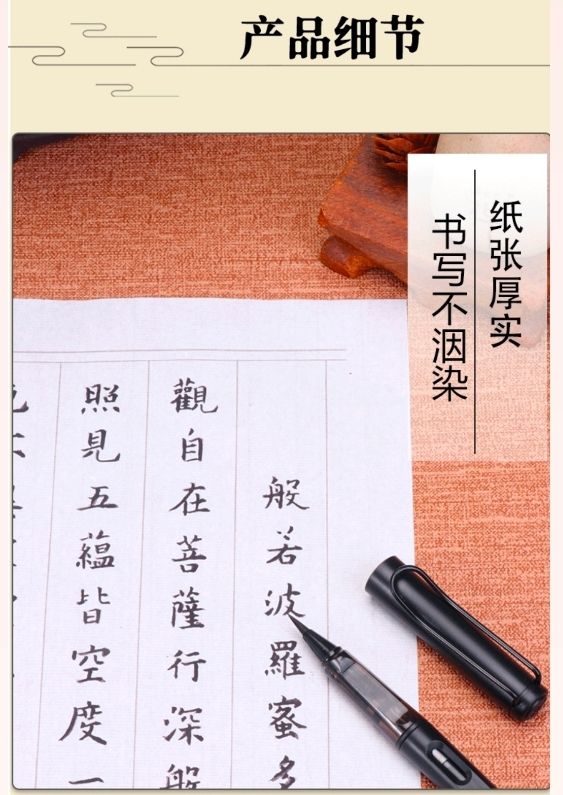 产品细节
纸张厚实
书写不洇染
般若波羅蜜多
觀自在菩薩行深般
照見五蘊皆空度一